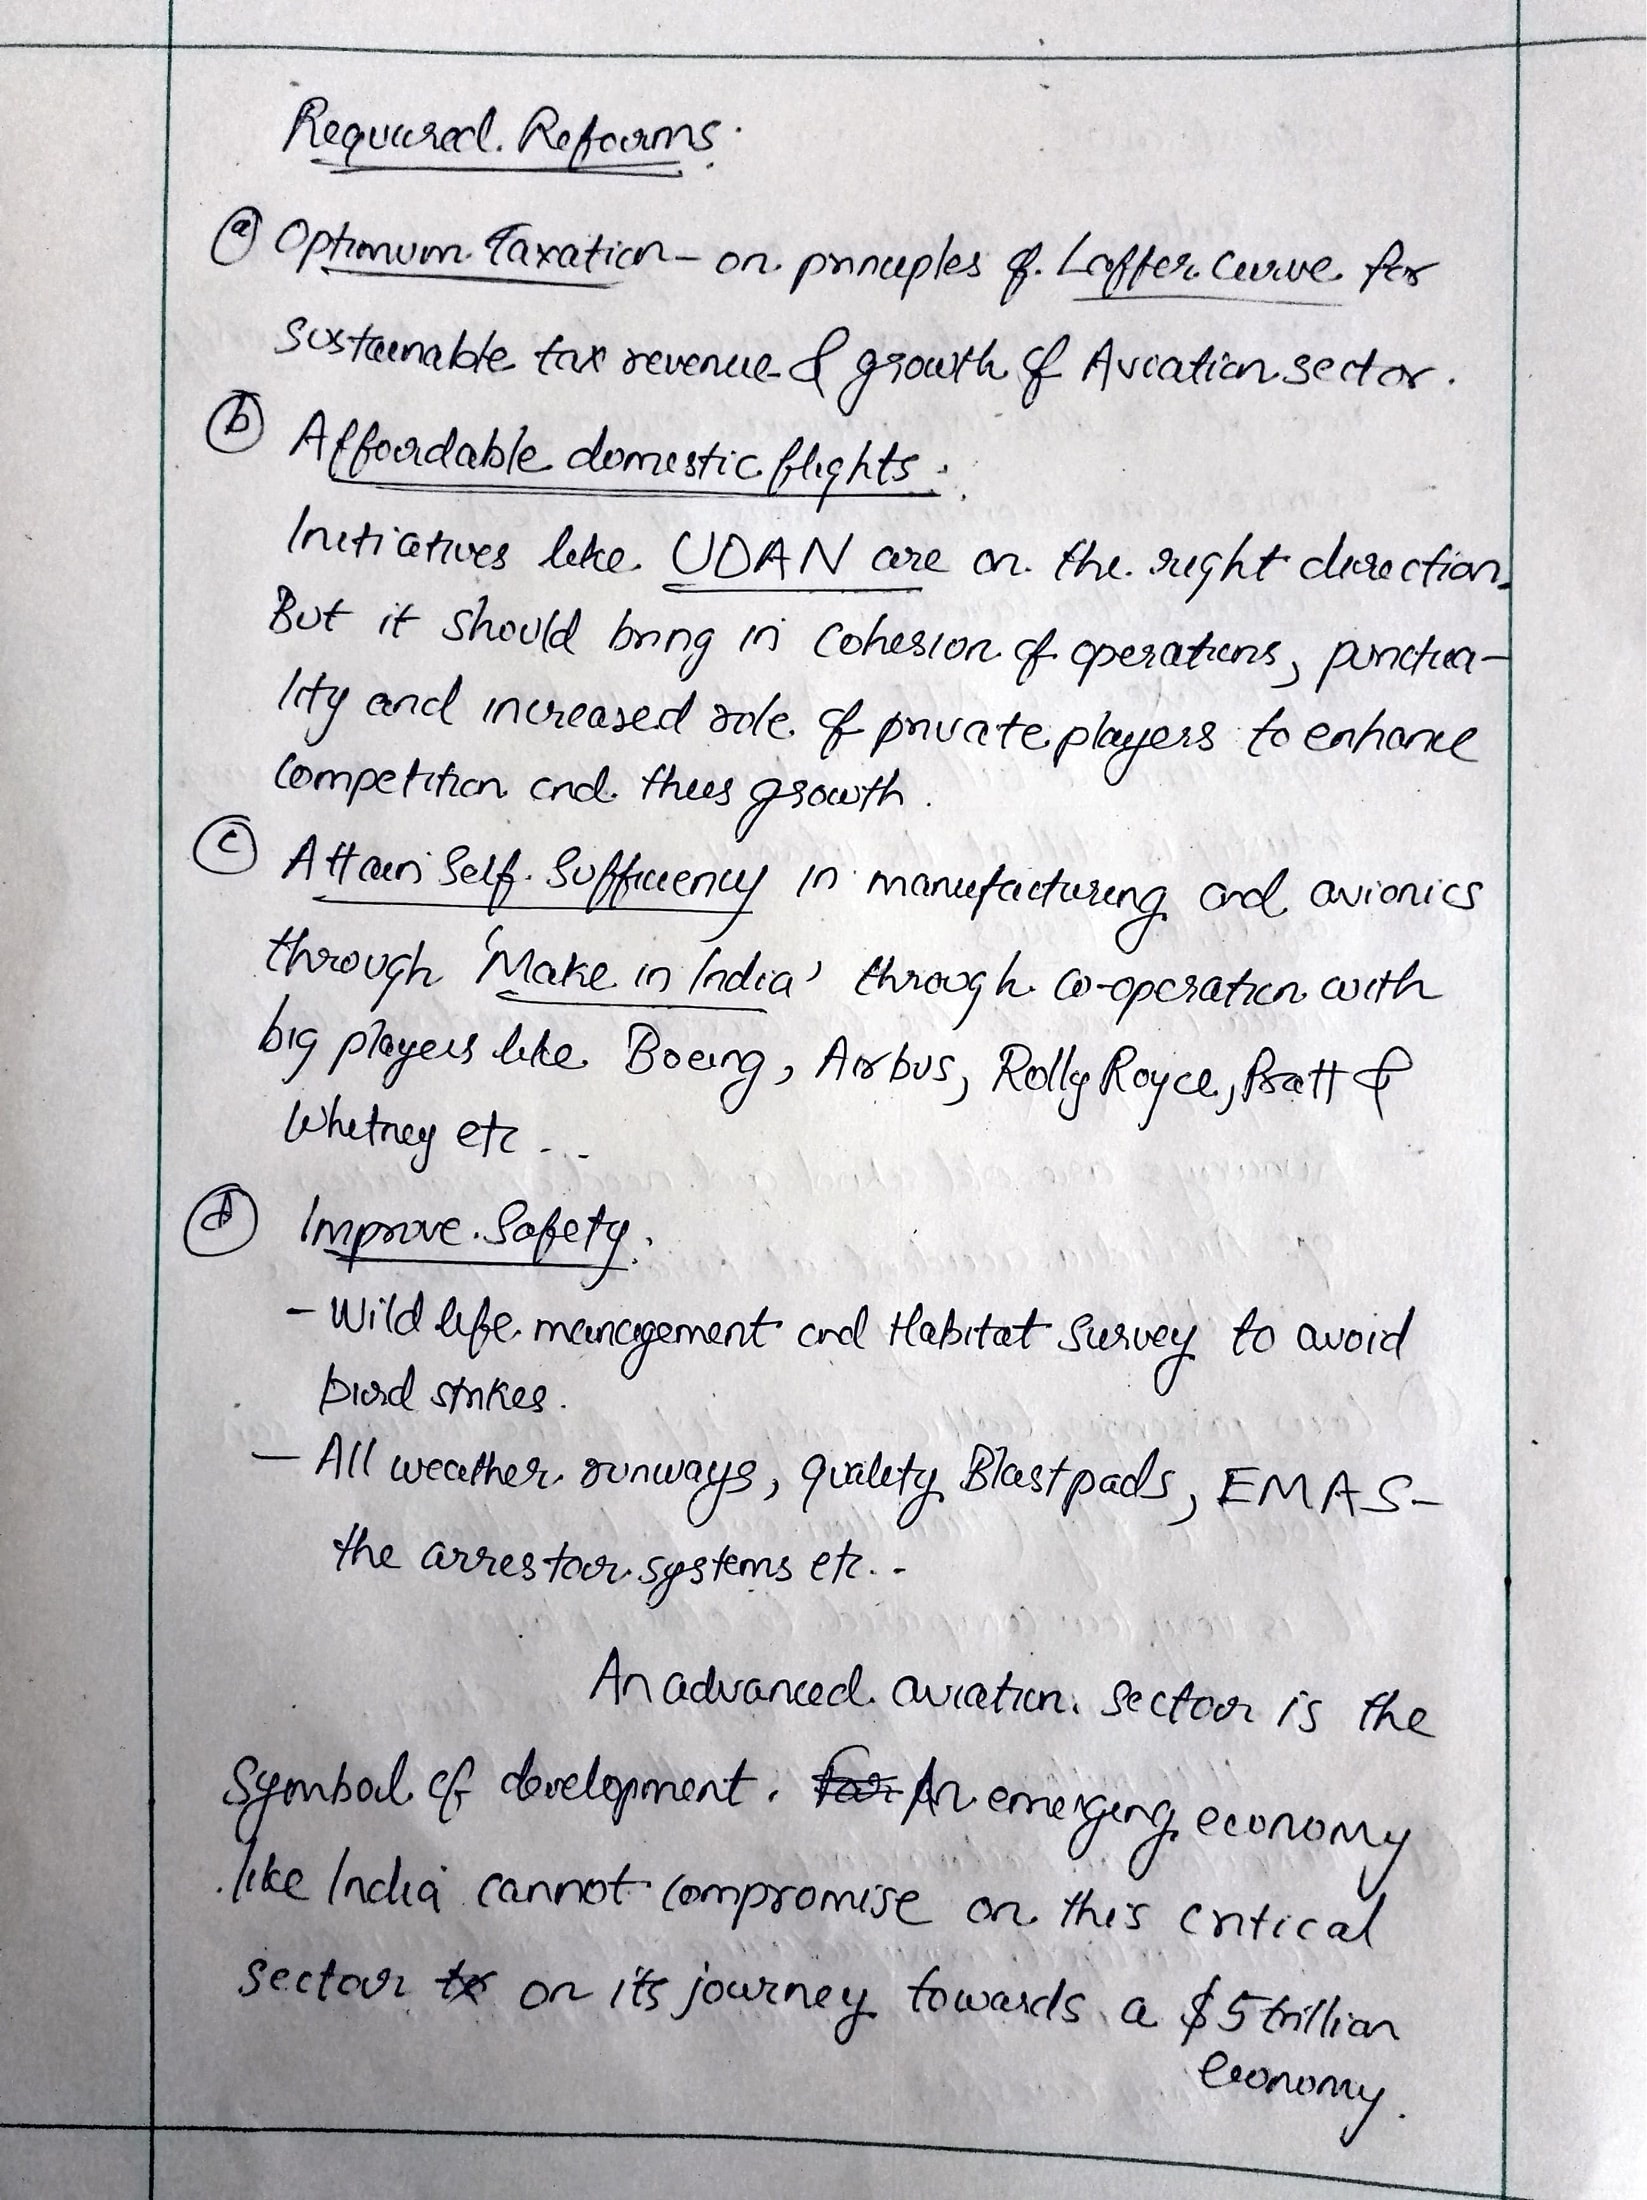 Required Reforms:
(a) Optimum Taxation - on principles of Laffer Curve for
sustainable tax revenue & growth of Aviation sector.
(b) Affordable domestic flights:
Initiatives like UDAN are on the right direction.
But it should bring in cohesion of operations, punctua-
lity and increased role of private players to enhance
competition and thus growth.
(c) Attain Self-Sufficiency in manufacturing and avionics
through 'Make in India' through co-operation with
big players like Boeing, Airbus, Rolly Royce, Pratt &
Whitney etc...
(d) Improve Safety:
- Wild life management and Habitat Survey to avoid
bird strikes.
- All weather runways, quality Blast pads, EMAS -
the arrestor systems etc..
An advanced aviation sector is the
symbol of development. An emerging economy
like India cannot compromise on this critical
sector on its journey towards a $5 trillion
economy.